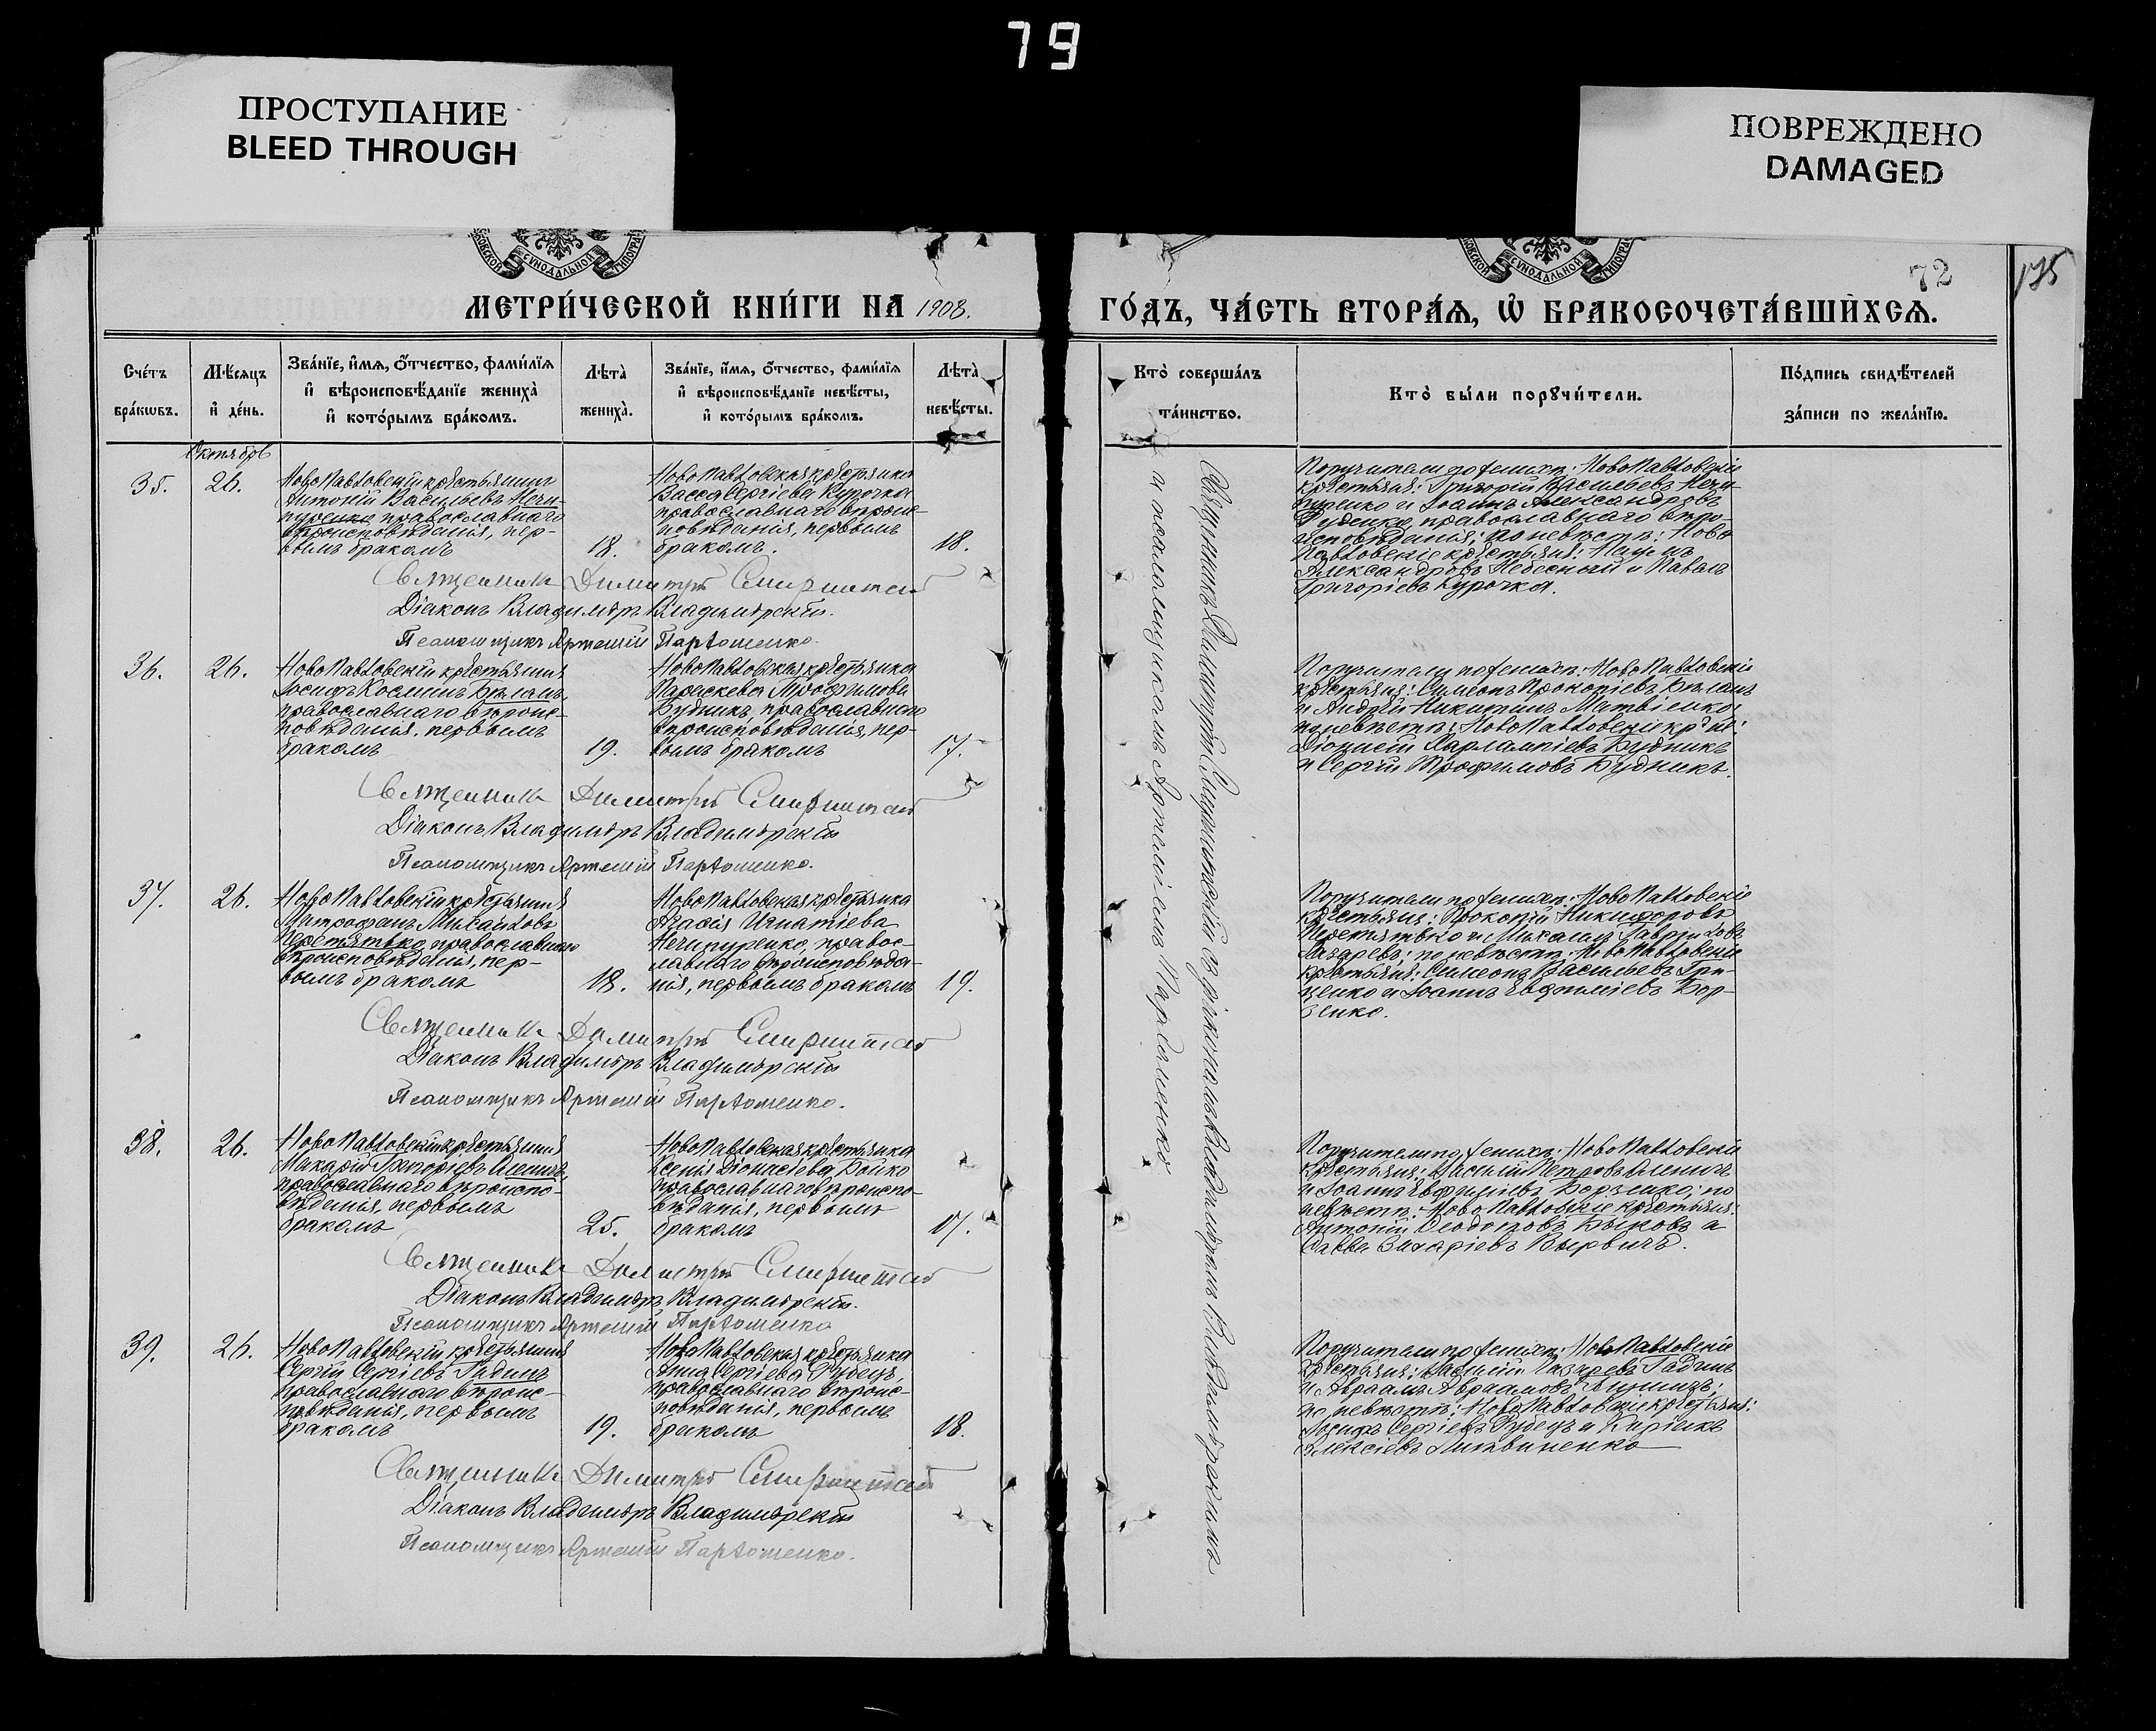 79
ПРОСТУПАНИЕ
BLEED THROUGH
ПОВРЕЖДЕНО
DAMAGED
72
175
МЕТРИ́ЧЕСКОЙ КНИ́ГИ НА 1908.
ГО́ДЪ, ЧА́СТЬ ВТОРА́Ѧ, Ѡ҆ БРАКОСОЧЕТА́ВШИХСѦ.
Счетъ бракѡвъ.
Мѣсяцъ и день.
Званіе, имя, отчество, фамилія и вѣроисповѣданіе жениха и которымъ бракомъ.
Лѣта жениха.
Званіе, имя, отчество, фамилія и вѣроисповѣданіе невѣсты, и которымъ бракомъ.
Лѣта невѣсты.
Кто совершалъ таинство.
Кто были порꙋчители.
Подпись свидѣтелей записи по желанію.
Октябрь
35. 26.
НовоПавловскій крестьянинъ
Антоній Васильевъ Нечи-
пуренко православнаго
вѣроисповѣданія, пер-
вымъ бракомъ
18.
НовоПавловская крестьянка
Васса Сергіева Курочка
православнаго вѣроис-
повѣданія, первымъ
бракомъ.
18.
Поручители по женихѣ: НовоПавловскіе
крестьяне: Григорій Васильевъ Нечи-
пуренко и Іоаннъ Александровъ
Руденко, православнаго вѣро-
исповѣданія; по невѣстѣ: Ново
Павловскіе крестьяне: Наумъ
Александровъ Небесный и Павелъ
Григоріевъ Курочка.
Священникъ Димитрій
Діаконъ Владиміръ Владимірскій.
Псаломщикъ Артемій Пархоменко.
36. 26.
НовоПавловскій крестьянинъ
Іосифъ Косминъ Бѣланъ,
православнаго вѣроис-
повѣданія, первымъ
бракомъ
19.
НовоПавловская крестьянка
Параскева Трофимова
Будникъ, православнаго
вѣроисповѣданія, пер-
вымъ бракомъ
17.
Поручители по женихѣ: НовоПавловскіе
крестьяне: Симеонъ Прокопіевъ Бѣланъ
и Андрей Никитинъ Матвіенко;
по невѣстѣ: НовоПавловскіе
Діонисій Харлампіевъ Будникъ
и Сергій Трофимовъ Будникъ.
Священникъ Димитрій
Діаконъ Владиміръ Владимірскій
Псаломщикъ Артемій Пархоменко.
37. 26.
НовоПавловскій крестьянинъ
Митрофанъ Михайловъ
Перетятько, православнаго
вѣроисповѣданія, пер-
вымъ бракомъ
18.
НовоПавловская крестьянка
Агафія Игнатіева
Нечипуренко, правос-
лавнаго вѣроисповѣда-
нія, первымъ бракомъ
19.
Поручители по женихѣ: НовоПавловскіе
крестьяне: Прокопій Никифоровъ
Перетятько и Михаилъ Гавріиловъ
Лазаревъ; по невѣстѣ: НовоПавловскіе
крестьяне: Симеонъ Васильевъ Гри-
ценко и Іоаннъ Евфиміевъ Бор-
зенко.
Священникъ Димитрій
Діаконъ Владиміръ Владимірскій
Псаломщикъ Артемій Пархоменко.
38. 26.
НовоПавловскій крестьянинъ
Макарій Григоріевъ
православнаго вѣроиспо-
вѣданія, первымъ
бракомъ
25.
НовоПавловская крестьянка
Ксенія Діонисіева Бойко
православнаго вѣроиспо-
вѣданія, первымъ
бракомъ
17.
Поручители по женихѣ: НовоПавловскіе
крестьяне: Василій Петровъ
и Іоаннъ Евфиміевъ Борзенко; по
невѣстѣ: НовоПавловскіе крестьяне:
Антоній Быковъ и
Савва Захаріевъ Вырвичъ.
Священникъ Димитрій
Діаконъ Владиміръ Владимірскій.
Псаломщикъ Артемій Пархоменко
39. 26.
НовоПавловскій крестьянинъ
Сергій Сергіевъ Гадинъ
православнаго вѣроис-
повѣданія, первымъ
бракомъ
19.
НовоПавловская крестьянка
Анна Сергіева Рубецъ,
православнаго вѣроис-
повѣданія, первымъ
бракомъ
18.
Поручители по женихѣ: НовоПавловскіе
крестьяне: Василій Лазаревъ Гадинъ
и Авраамъ Авраамовъ
по невѣстѣ: НовоПавловскіе крестьяне:
Іосифъ Сергіевъ Рубецъ и Киріакъ
Алексіевъ Литвиненко
Священникъ Димитрій
Діаконъ Владиміръ Владимірскій
Псаломщикъ Артемій Пархоменко.
Священникъ Димитрій съ діакономъ Владиміромъ Владимірскимъ
и псаломщикомъ Артеміемъ Пархоменко